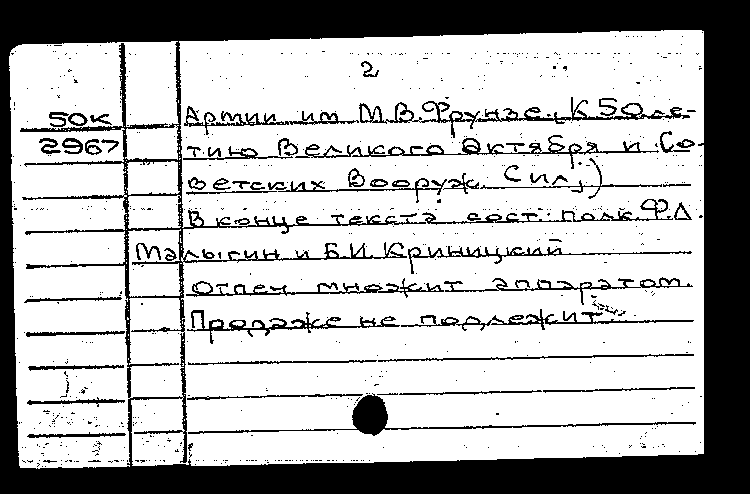 2
50К Армии им М.В.Фрунзе. К 50ле-
2967 тию Великого Октября и Со-
ветских Вооруж. Сил;)
В конце текста сост: полк.Ф.Л.
Малыгин и Б.И.Криницкий
Отпеч множит аппаратом.
Продаже не подлежит